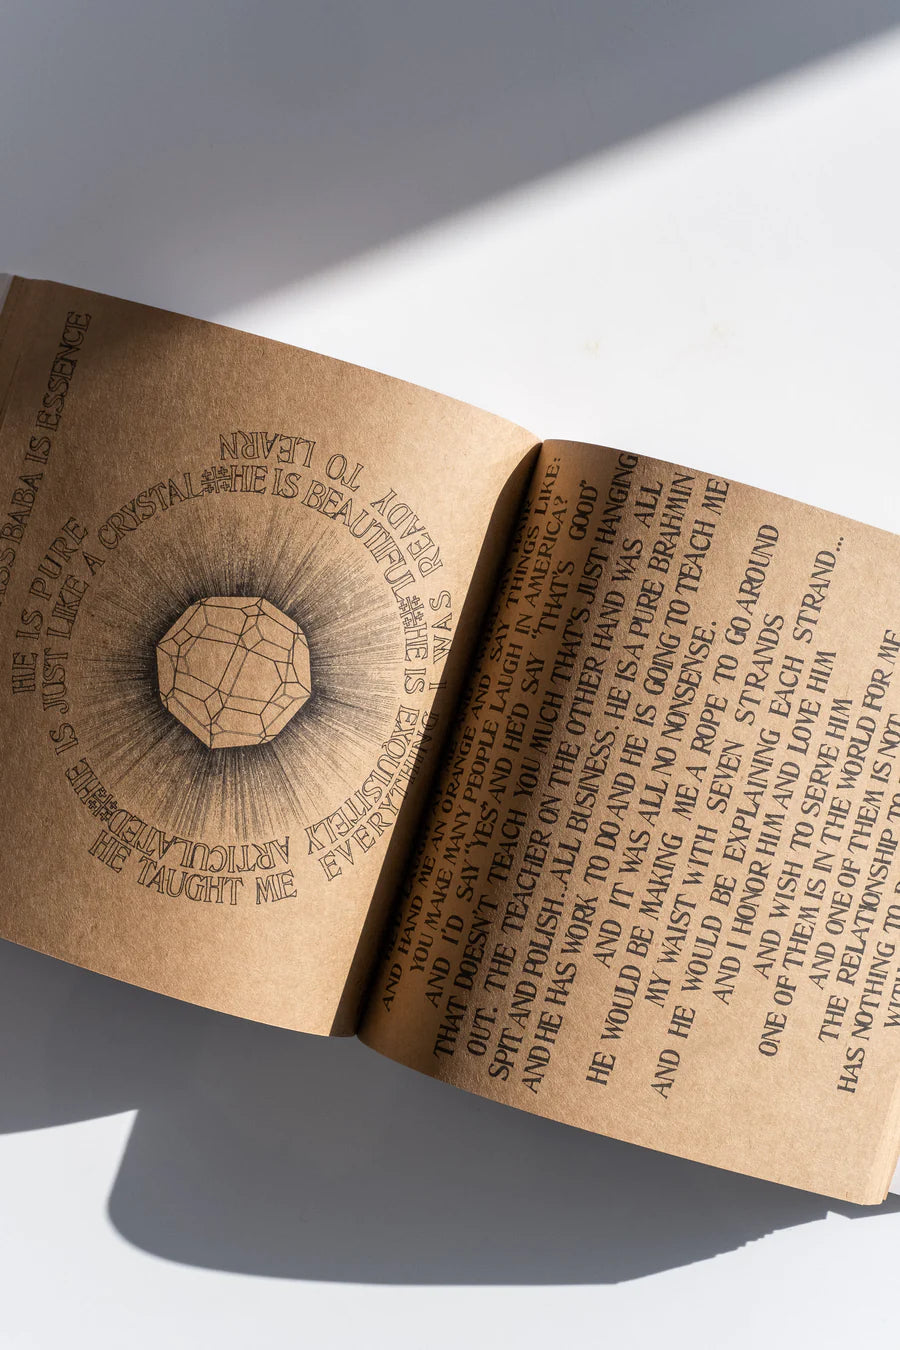 BABA IS ESSENCE
HE IS PURE
HE IS JUST LIKE A CRYSTAL HE IS BEAUTIFUL HE IS EXQUISITELY ARTICULATED
HE TAUGHT ME EVERYTHING AND I WAS READY TO LEARN
AND HAND ME AN ORANGE AND SAY THINGS LIKE:
YOU MAKE MANY PEOPLE LAUGH IN AMERICA?
AND I'D SAY "YES" AND HE'D SAY "THAT'S GOOD"
THAT DOESN'T TEACH YOU MUCH THAT'S JUST HANGING
OUT. THE TEACHER ON THE OTHER HAND WAS ALL
SPIT AND POLISH...ALL BUSINESS, HE IS A PURE BRAHMIN
AND HE HAS WORK TO DO AND HE IS GOING TO TEACH ME
AND IT WAS ALL NO NONSENSE.
HE WOULD BE MAKING ME A ROPE TO GO AROUND
MY WAIST WITH SEVEN STRANDS
AND HE WOULD BE EXPLAINING EACH STRAND...
AND I HONOR HIM AND LOVE HIM
AND WISH TO SERVE HIM
ONE OF THEM IS IN THE WORLD FOR ME
AND ONE OF THEM IS NOT
THE RELATIONSHIP TO
HAS NOTHING TO